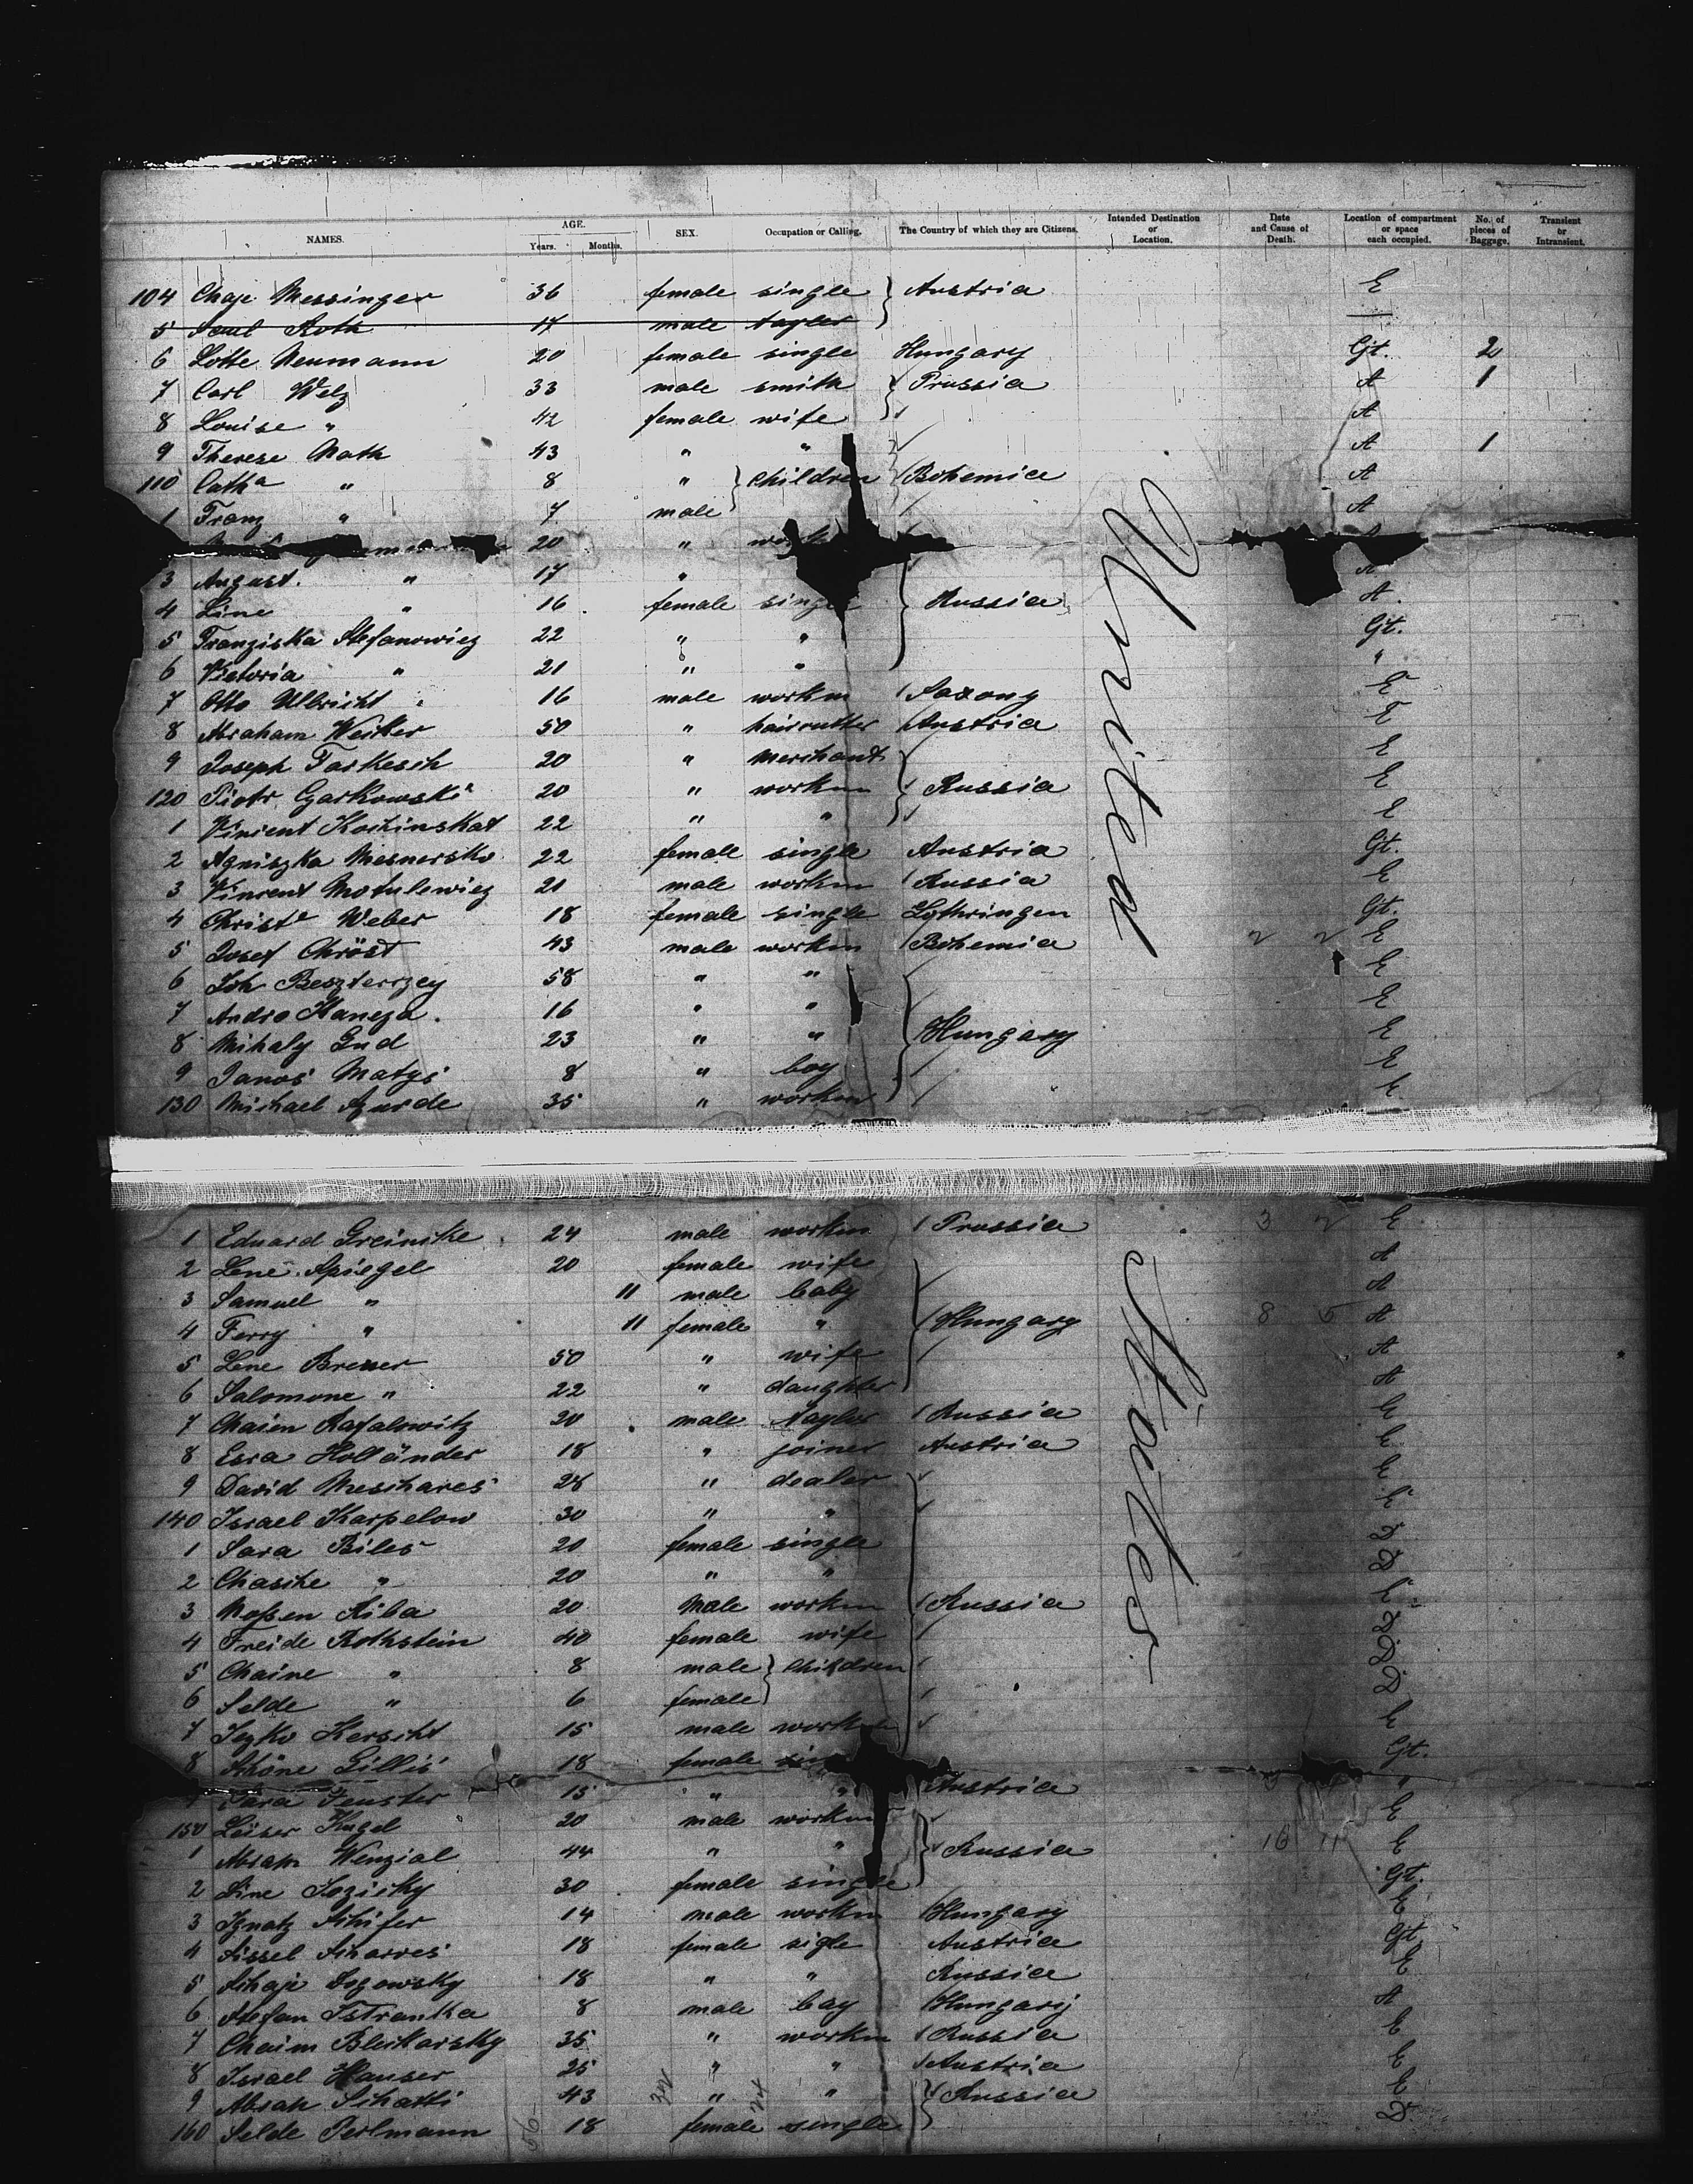 NAMES. AGE. Years. Months. SEX. Occupation or Calling. The Country of which they are Citizens. Intended Destination or Location. Date and Cause of Death. Location of compartment or space each occupied. No. of pieces of Baggage. Transient or Intransient.
104 Chaje Messinger 36 female single Austria E
5 Saul Roth 17 male taylor
6 Lotte Neumann 20 female single Hungary Gt. 2
7 Carl Welz 33 male smith Prussia A 1
8 Louise " 42 female wife A
9 Therese Math 43 " " A 1
110 Catha " 8 " children Bohemia A
1 Franz " 7 male A
20 "
3 August " 17 " A
4 Line " 16 female single Russia A
5 Franziska Stefanowicz 22 " " Gt.
6 Victoria " 21 " " "
7 Otto Ulbricht 16 male workm Saxony E
8 Abraham Weiker 50 " haircutter Austria E
9 Joseph Farkesch 20 " merchant E
120 Piotr Czarkowski 20 " workm Russia E
1 Vincent 22 " " E
2 Agniszka Mesnersko 22 female single Austria Gt.
3 Vincent Motulewicz 21 male workm Russia E
4 Christe Weber 18 female single Lothringen Gt.
5 Josef Chröst 43 male workm Bohemia 2 2 E
6 Joh Beszterczey 58 " " E
7 Andro Kaneza 16 " " E
8 Mihaly Gud 23 " " Hungary E
9 Janos Matys 8 " boy E
130 Michael 35 " workm E
United
1 Eduard Greinike 24 male workm Prussia 3 2 E
2 Lene Spiegel 20 female wife A
3 Samuel " 11 male baby A
4 Ferry " 11 female " Hungary 8 5 A
5 Lene Brener 50 " wife A
6 Salomone " 22 " daughter A
7 Chaien Rafalowitz 20 male taylor Russia E
8 Esra Holländer 18 " joiner Austria E
9 David Meschares 28 " dealer E
140 Israel Karpelow 30 " " E
1 Sara Biles 20 female single D
2 Chasche " 20 " " D
3 Moßen Riba 20 Male workm Russia E
4 Freide Rothstein 40 female wife D
5 Chaine " 8 male children D
6 Selde " 6 female D
7 Kerscht 15 male workm E
8 Schöne Lillis 18 female Gt.
9 Sara Fenster 15 " " Austria "
150 Leiser Kugel 20 male workm E
1 Abram Wenzial 44 " " Russia 16 11 E
2 Line 30 female single Gt.
3 Ignatz Schifer 14 male workm Hungary E
4 Sissel Scharres 18 female sigle Austria Gt
5 Schaje 18 " " Russia E
6 Stefan Istranka 8 male boy Hungary A
7 Chaim Bleikarsky 35 " workm Russia E
8 Israel Hauser 25 " " Austria E
9 Abrah Scharki 43 " " Russia E
160 Selde Perlmann 18 female single D
States